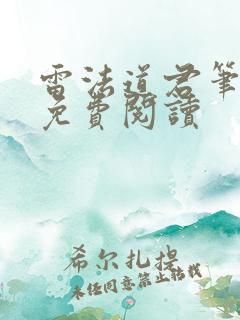 雷法道君筆
免費閱讀
希尔扎提
未经同意禁止转载